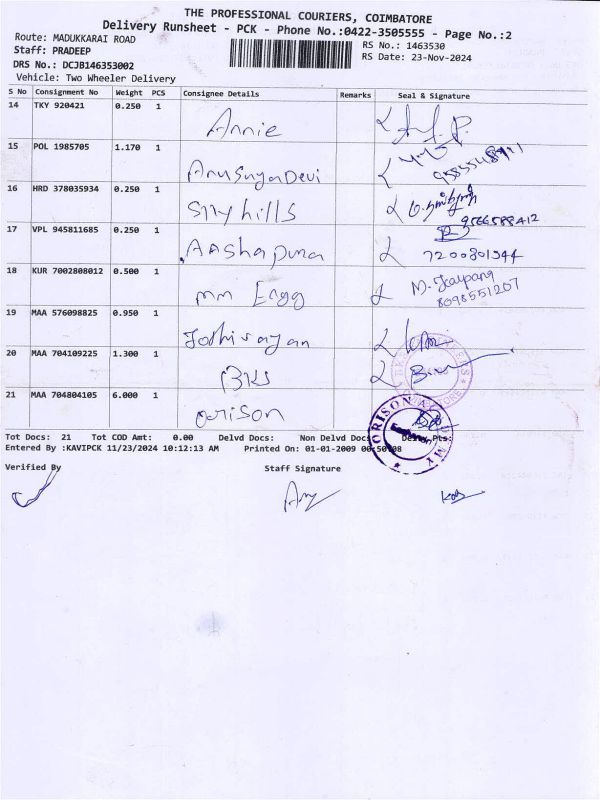 THE PROFESSIONAL COURIERS, COIMBATORE
Delivery Runsheet - PCK - Phone No.:0422-3505555 - Page No.:2
Route: MADUKKARAI ROAD
Staff: PRADEEP
DRS No.: DCJB146353002
Vehicle: Two Wheeler Delivery
RS No.: 1463530
RS Date: 23-Nov-2024
S No Consignment No Weight PCS Consignee Details Remarks Seal & Signature
14 TKY 920421 0.250 1 Annie
15 POL 1985705 1.170 1 Anusuya Devi
16 HRD 378035934 0.250 1 Sky hills
9566588412
17 VPL 945811685 0.250 1 Aashapura 7200801344
18 KUR 7002808012 0.500 1 mm Engg 8098551207
19 MAA 576098825 0.950 1
20 MAA 704109225 1.300 1 BKS
21 MAA 704804105 6.000 1 orison
ORISON
Tot Docs: 21 Tot COD Amt: 0.00 Delvd Docs: Non Delvd Docs Pts:
Entered By :KAVIPCK 11/23/2024 10:12:13 AM Printed On: 01-01-2009 00:50:08
Verified By Staff Signature